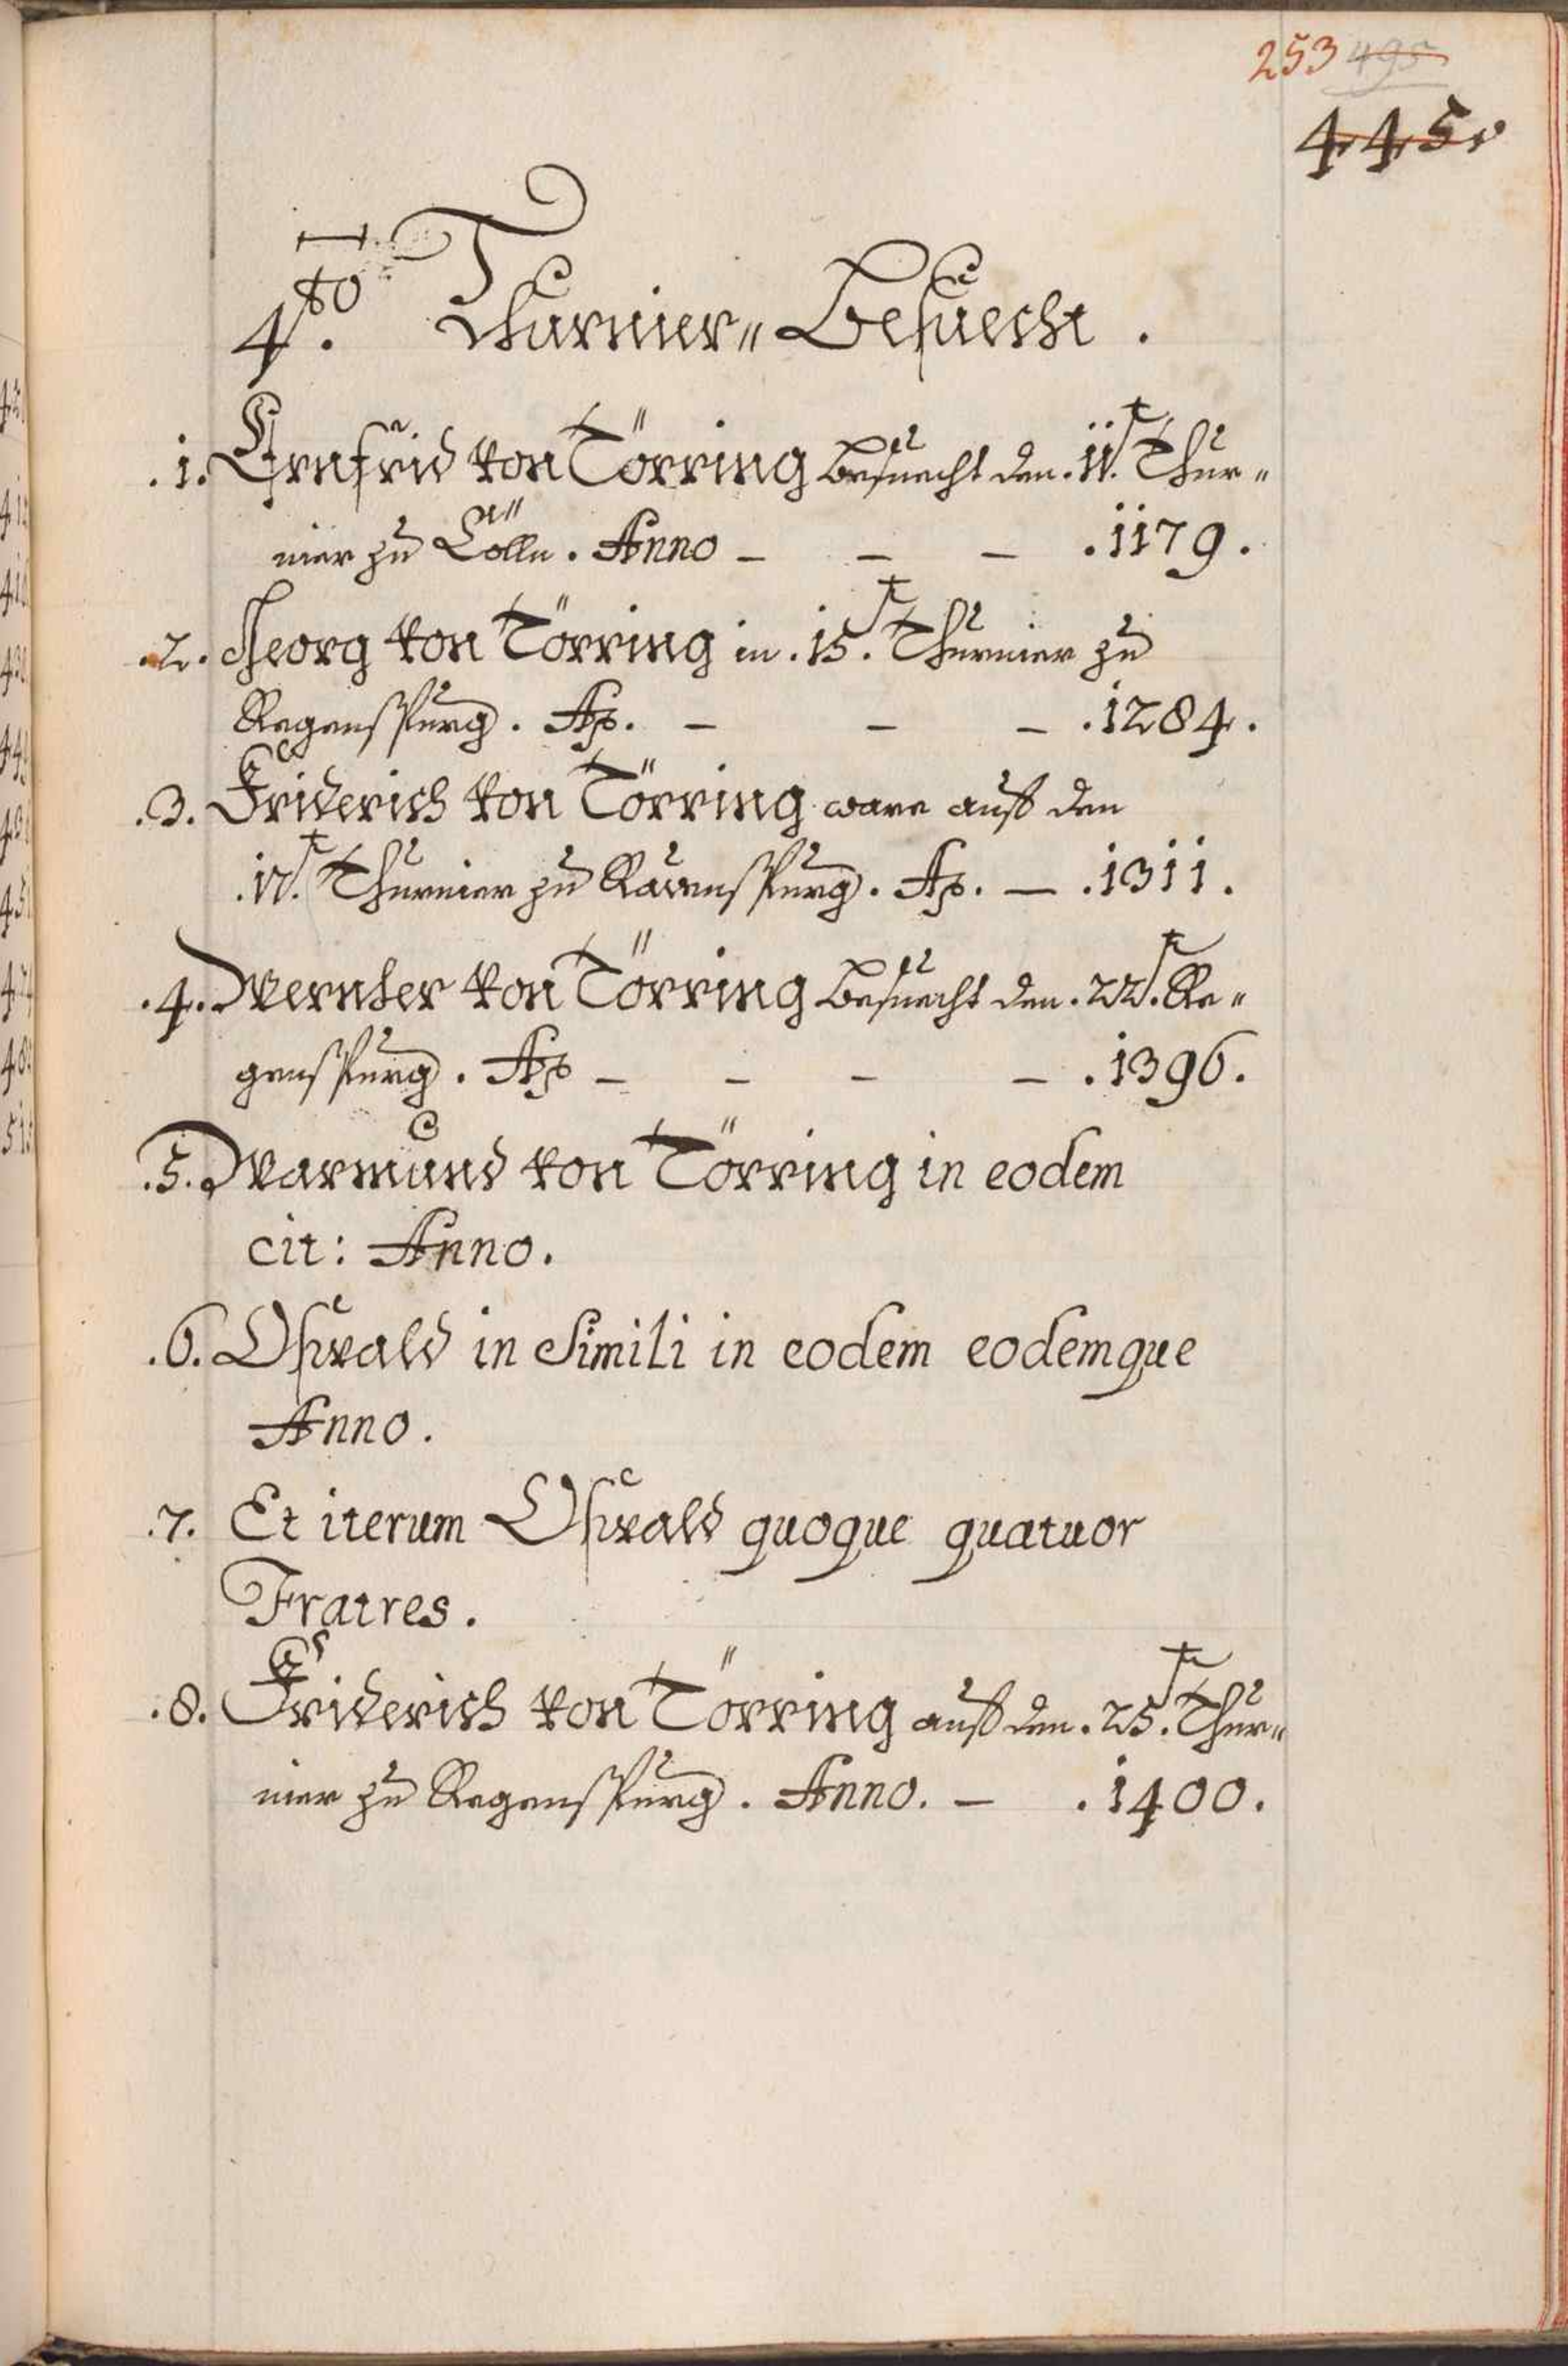 253 495
445.
4to. Thurnier„ Besuecht .
.1. Ernfrid von Törring besuecht den .11t. Thur„
nier zu Cölln . Anno – – – .1179.
.2. Georg von Törring in .15t. Thurnier zu
Regenspurg . Ao. – – – .1284.
.3. Friderich von Törring ware auf den
.17t. Thurnier zu Ravenspurg . Ao. – .1311.
.4. Wernher von Törring besuecht den .22t. Re„
genspurg . Ao – – – – .1396.
.5. Warmund von Törring in eodem
cit: Anno.
.6. Oswald in Simili in eodem eodemque
Anno .
.7. Et iterum Oswald quoque quatuor
Fratres .
.8. Friderich von Törring auf den .25t. Thur„
nier zu Regenspurg . Anno. – .1400.